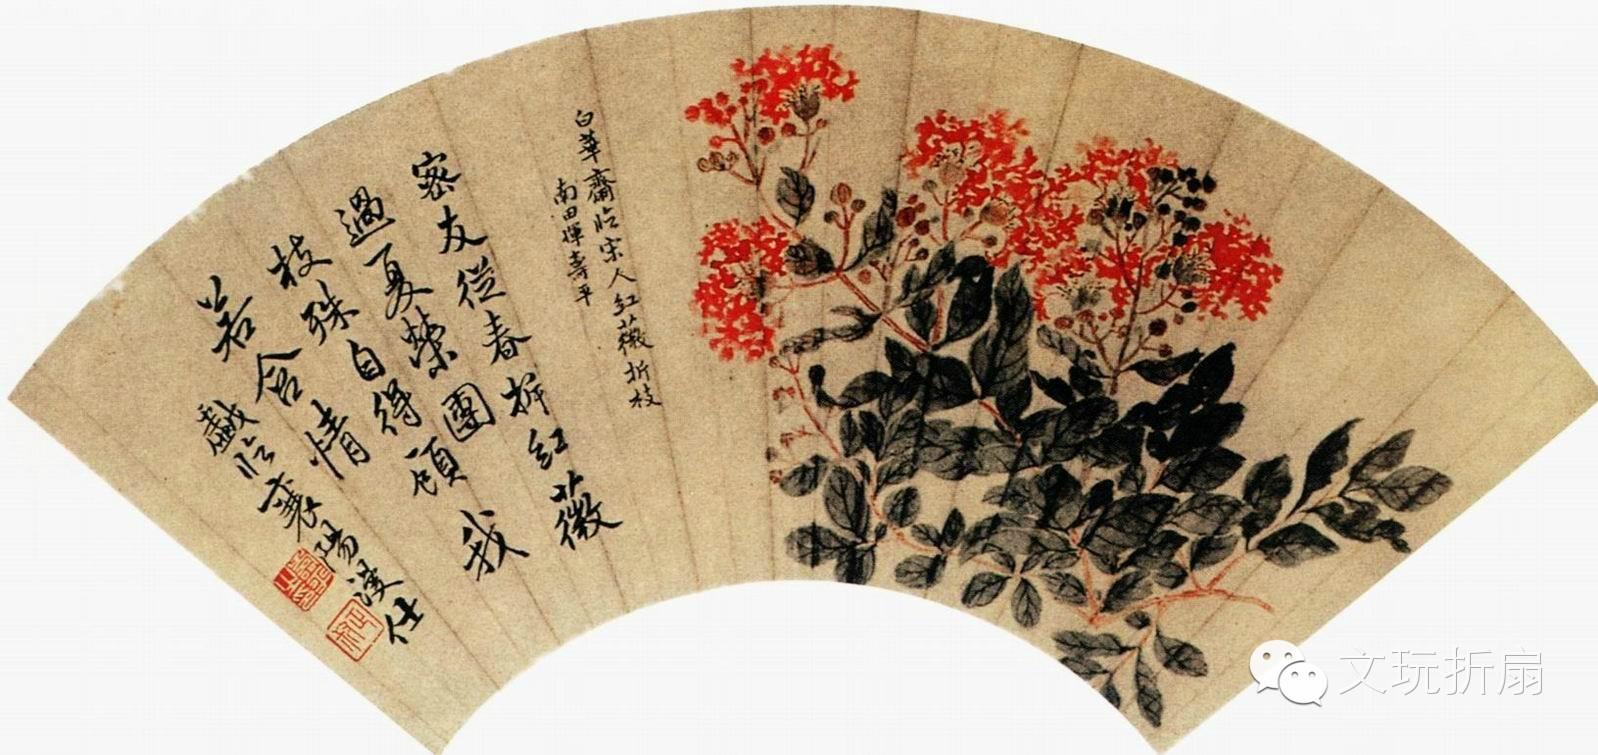 白華齋臨宋人紅薇折枝
南田惲壽平
密友從春折紅薇
過夏榮團
枝殊自得顧我
若含情
戲臨襄陽漫仕
文玩折扇